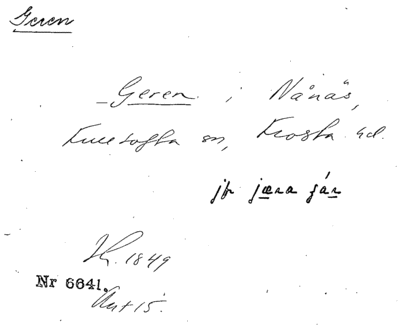 Geren
Geren i Nånäs,
Fulltofta sn, Frosta hd.
jfr jæra gár
1849
Nr 6641.
Ant 15.